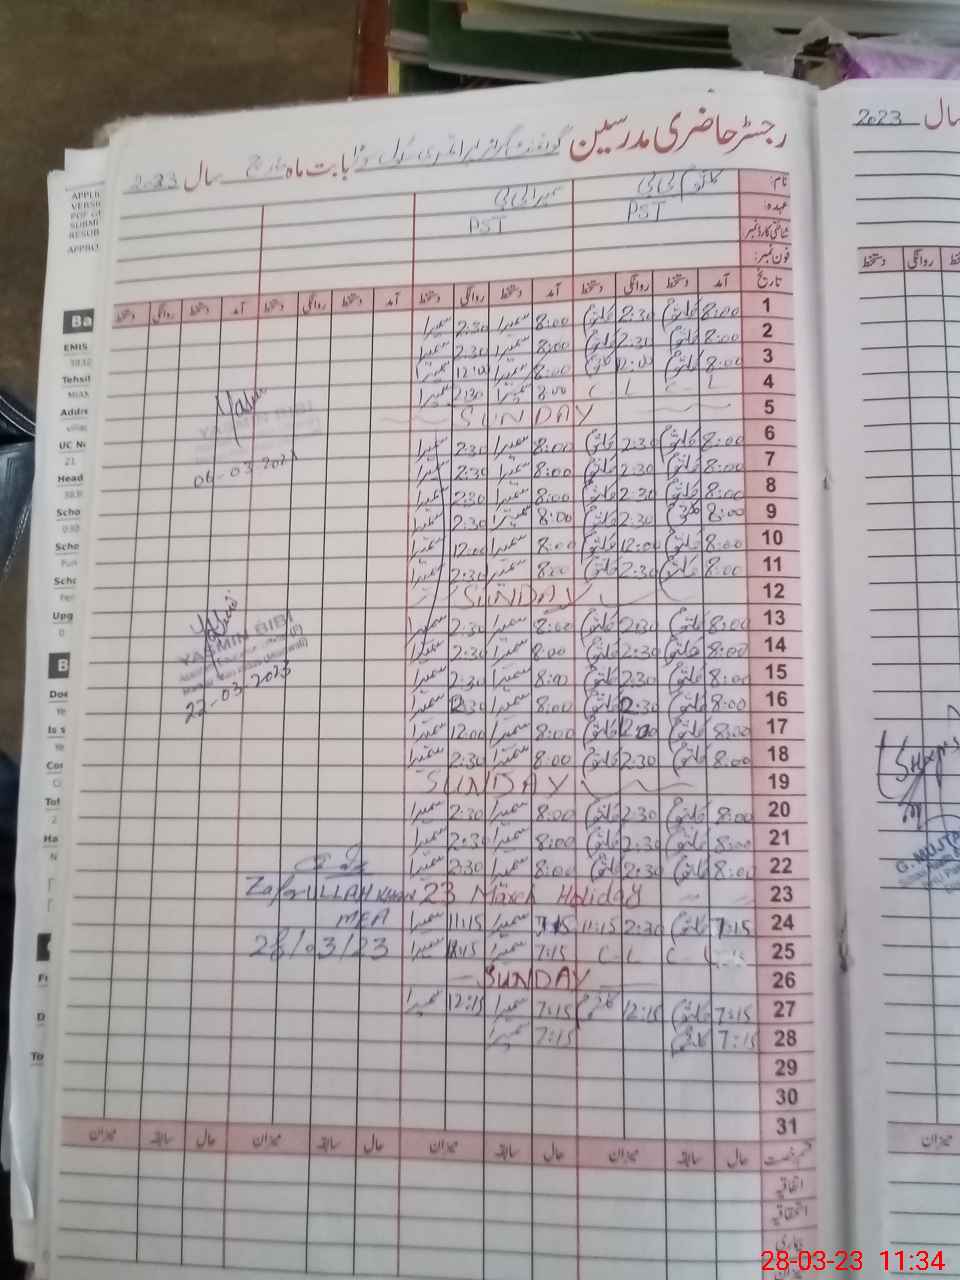 رجسٹر حاضری مدرسین گورنمنٹ گرلز پرائمری سکول بابت ماہ مارچ سال 2023
نام: کلثوم بی بی سمیرا بی بی
عہدہ: PST PST
شناختی کارڈ نمبر
فون نمبر:
تاریخ آمد دستخط روانگی دستخط آمد دستخط روانگی دستخط آمد دستخط روانگی دستخط آمد دستخط روانگی دستخط
1 8:00 کلثوم 2:30 کلثوم 8:00 سمیرا 2:30 سمیرا
2 8:00 کلثوم 2:30 کلثوم 8:00 سمیرا 2:30 سمیرا
3 8:00 کلثوم 12:00 کلثوم 8:00 سمیرا 12:00 سمیرا
4 L C L C 8:00 سمیرا 2:30 سمیرا
5 SUNDAY
6 8:00 کلثوم 2:30 کلثوم 8:00 سمیرا 2:30 سمیرا
7 8:00 کلثوم 2:30 کلثوم 8:00 سمیرا 2:30 سمیرا
8 8:00 کلثوم 2:30 کلثوم 8:00 سمیرا 2:30 سمیرا
9 8:00 کلثوم 2:30 کلثوم 8:00 سمیرا 2:30 سمیرا
10 8:00 کلثوم 12:00 کلثوم 8:00 سمیرا 12:00 سمیرا
11 8:00 کلثوم 2:30 کلثوم 8:00 سمیرا 2:30 سمیرا
12 SUNDAY
13 8:00 کلثوم 2:30 کلثوم 8:00 سمیرا 2:30 سمیرا
14 8:00 کلثوم 2:30 کلثوم 8:00 سمیرا 2:30 سمیرا
15 8:00 کلثوم 2:30 کلثوم 8:00 سمیرا 2:30 سمیرا
16 8:00 کلثوم 2:30 کلثوم 8:00 سمیرا 2:30 سمیرا
17 8:00 کلثوم 12:00 کلثوم 8:00 سمیرا 12:00 سمیرا
18 8:00 کلثوم 2:30 کلثوم 8:00 سمیرا 2:30 سمیرا
19 SUNDAY
20 8:00 کلثوم 2:30 کلثوم 8:00 سمیرا 2:30 سمیرا
21 8:00 کلثوم 2:30 کلثوم 8:00 سمیرا 2:30 سمیرا
22 8:00 کلثوم 2:30 کلثوم 8:00 سمیرا 2:30 سمیرا
23 23 March Holiday
24 7:15 کلثوم 2:30 11:15 7:15 سمیرا 11:15 سمیرا
25 L C L C 7:15 سمیرا سمیرا
26 SUNDAY
27 7:15 کلثوم 12:15 کلثوم 7:15 سمیرا 12:15 سمیرا
28 7:15 کلثوم 7:15 سمیرا
29
30
31
قسم رخصت حال سابقہ میزان حال سابقہ میزان حال سابقہ میزان حال سابقہ میزان
اتفاقیہ
استحقاقیہ
بیماری
میزان
YASMIN BIBI
06-03-2023
YASMIN BIBI
22-03-2023
ZafarULLAH KHAN
MEA
28/03/23
سال 2023
روانگی دستخط
G. MUJTA
میزان
APPLIC
VERSI
SUBMI
RESUB
APPRO
Ba
EMIS
Tehsil
Addre
UC Nu
21
Head
Scho
Scho
Scho
Upg
0
B
Doe
Is s
Tot
Ha
28-03-23 11:34